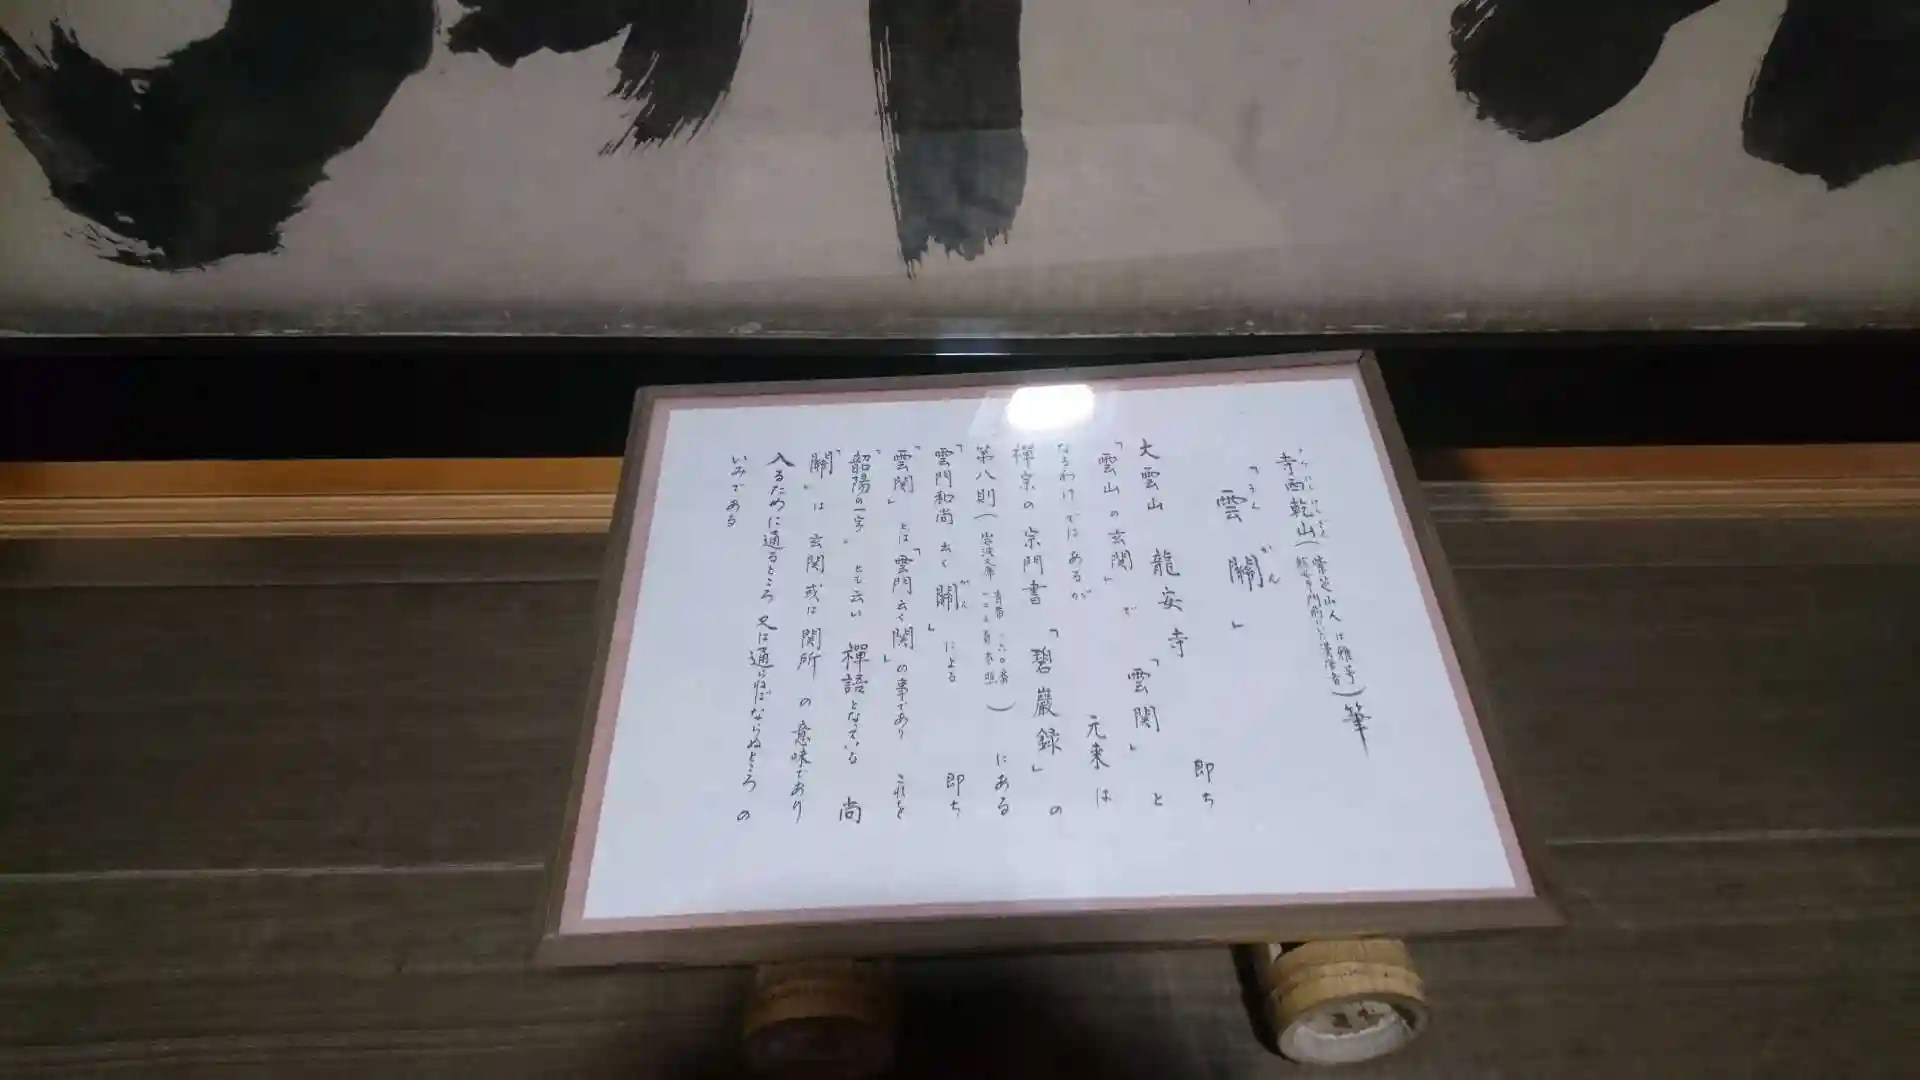 寺西乾山(紫芝山人は雅号 龍安寺門前にいた漢学者)筆
てらにしけんざん
「雲關」
うん かん
大雲山 龍安寺 即ち
「雲山の玄関」で「雲関」と
なるわけではあるが 元来は
禅宗の宗門書「碧巌録」の
第八則(岩波文庫 青帯 )にある
「雲門和尚 云く 關」による 即ち
かん
「雲関」とは「雲門云く関」の事であり これを
「韶陽の一字」とも云い 禅語となっている 尚
「關」は玄関或は関所の意味であり
入るために通るところ 又は通らねばならぬところの
いみである